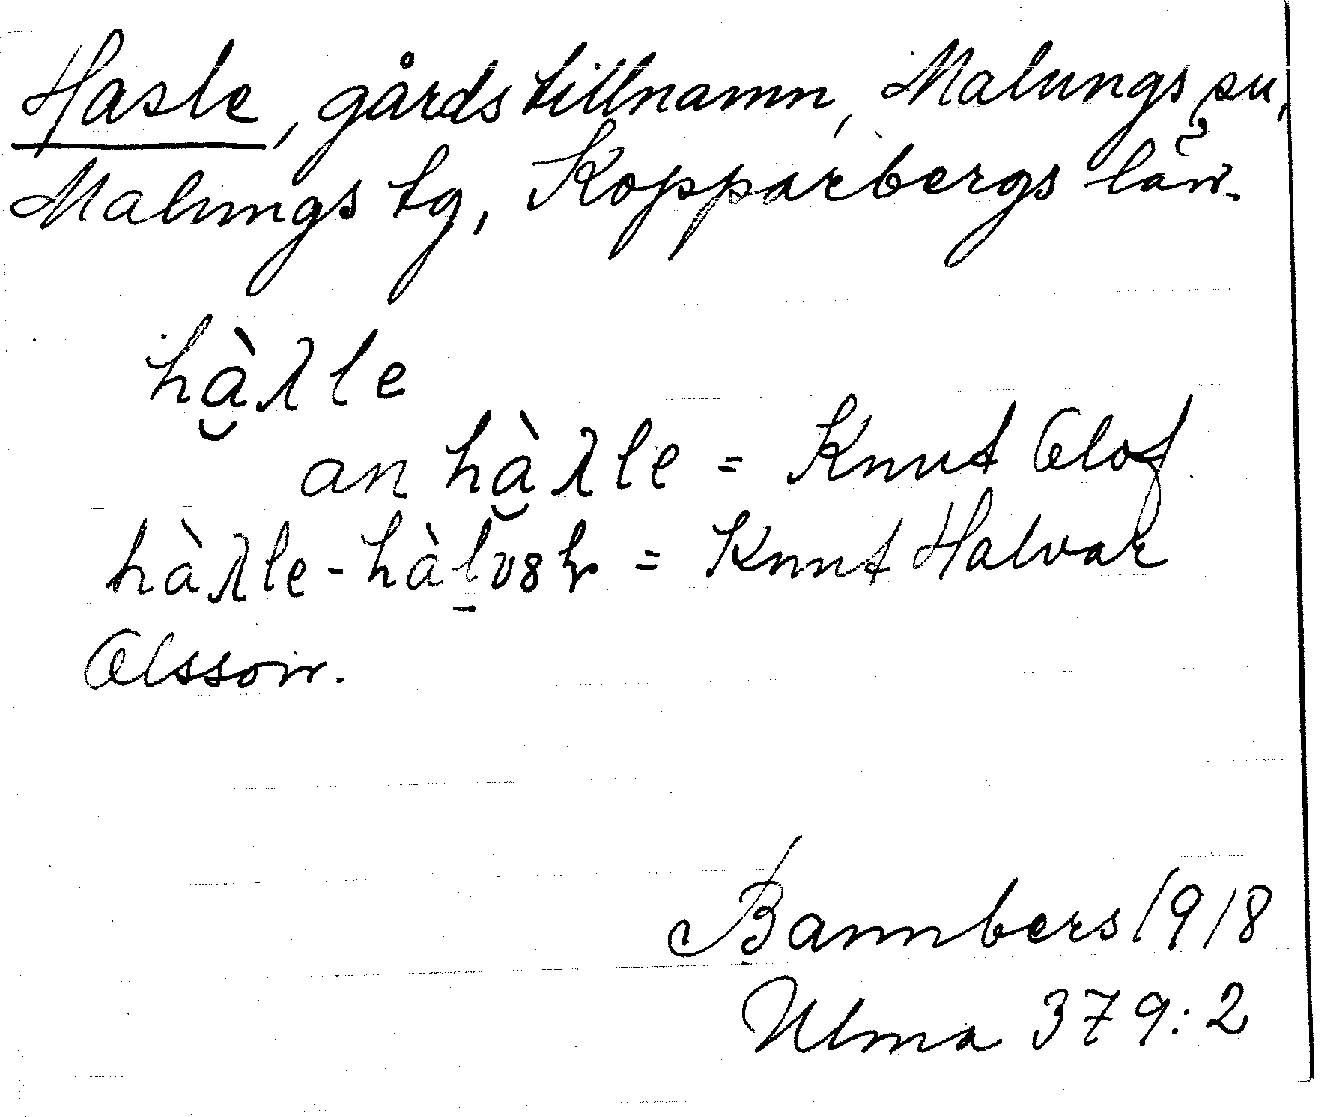 Hasle, gårdstillnamn, Malungs sn,
Malungs tg, Kopparbergs län.
hà̮λle
an hà̮λle = Knut Olof
hàλle-hàl̠v8r = Knut Halvar
Olsson.
Bannbers 1918
Ulma 379:2